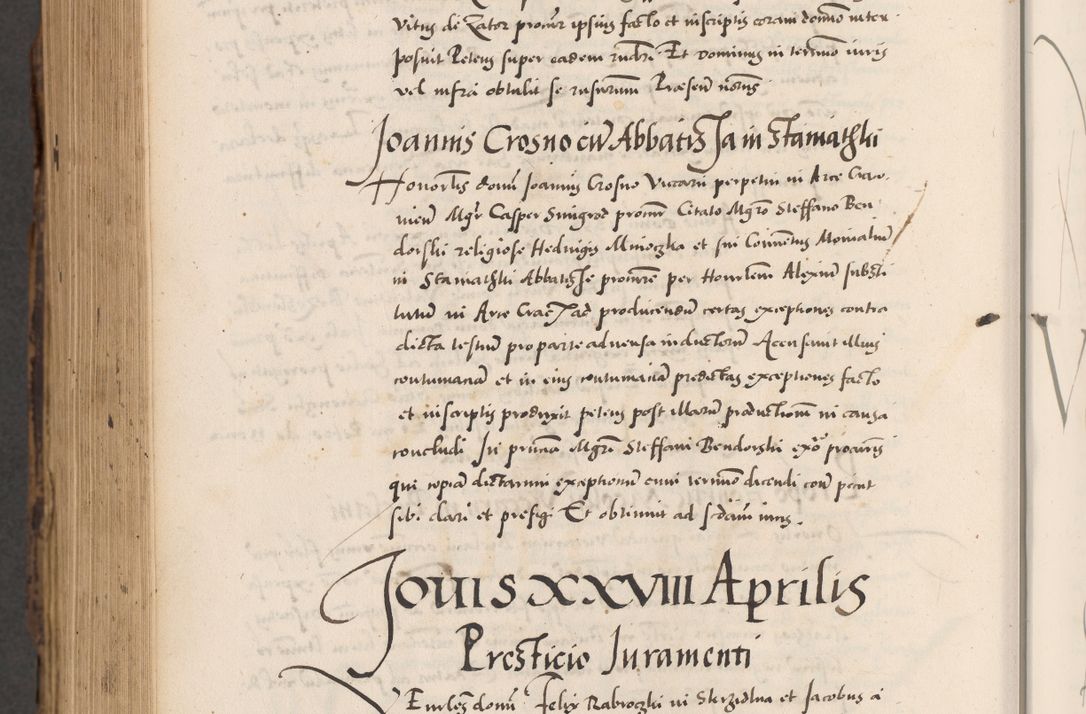 vitus de Zator procur ipsius facto et in scriptis coram domino inter
posuit Petens super eadem Et Dominus in termino iuris
vel infra obtulit se rusurum Presen
Joannis Crosno cu Abbatissa in Staniathki
Honorlis domi Joannis Crosno Vicarii perpetui in Arce Crac
Mgr Casper Smigrod procur Citato Mgro Steffano Ben
dorski religiose Hedvigis et sui Conventus Monialiu
in Staniathki Abbatisse procure per Honorlem Alexium substi
tutu in Arce Crac ad producendu certas exceptiones contra
dicta testiu pro parte adversa inductoru Accusavit illius
contumacia et in eius contumacia predictas exceptiones facto
et in scriptis produxit petens post illaru productionem in causa
concludi In Mgri Steffani Bendorski procuris
qui copia dictarum exceptionu cum termino dicendi con petiit
sibi dari et prefigi Et obtinuit ad s daiu iuris.
Jovis XXVIII Aprilis
Presticio Juramenti
Venrles domi Felix Rabroczki in Skrzidlna et Jacobus a